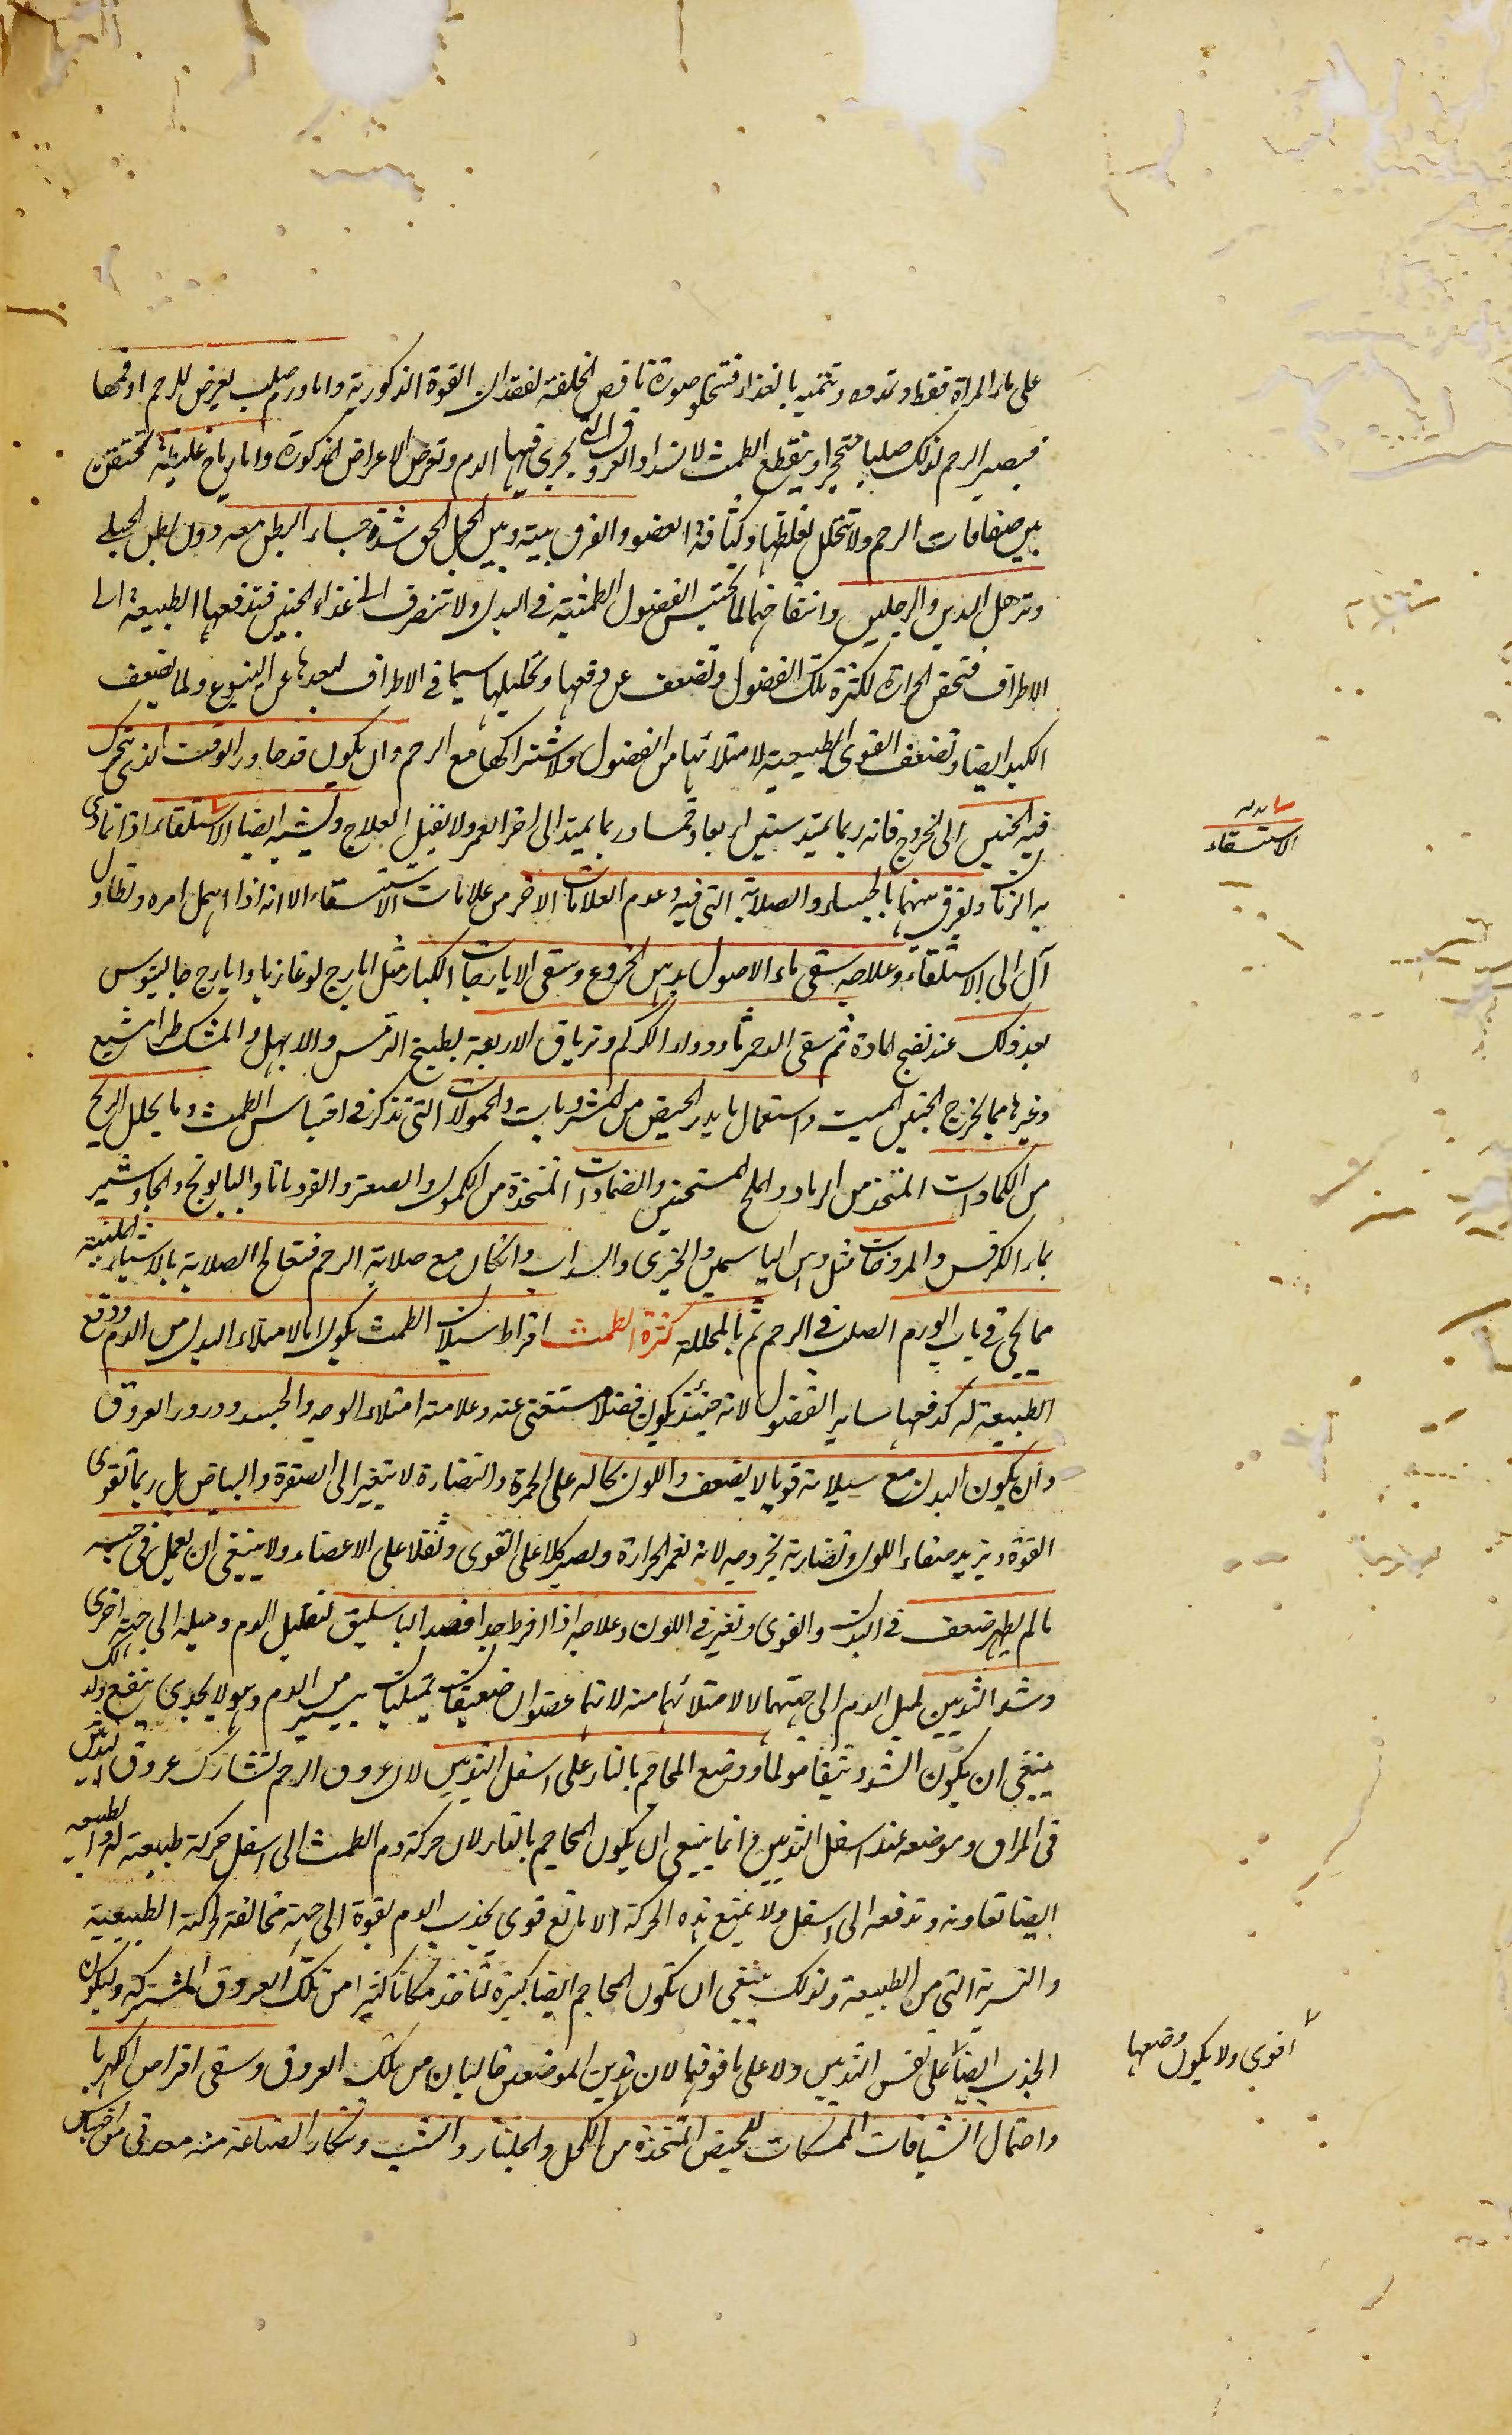 على ماء المراة فقط وتمده وتنميه بالغذاء فتخلق صورة ناقص الخلقة لفقدان القوة الذكورية واما ورم صلب يعرض للرحم او فمها
فيصير الرحم لذلك صلبا متحجرا وينقطع الطمث لانسداد العروق التى يجرى فيها الدم وتعرض الاعراض المذكورة واما رياح غليظة تحتقن
بين صفاقات الرحم ولا تتحلل لغلظها وكثافة العضو والفرق بينه وبين الحبل الحق شدة جساء البطن معه دون بطن الحبلى
وترهل اليدين والرجلين وانتفاخهما لما تحتبس الفضول الطمثية فى البدن ولا تنصرف الى غذاء الجنين فتدفعها الطبيعة الى
الاطراف فتحقن الحرارة لكثرة تلك الفضول وتضعف عن دفعها وتحليلها سيما فى الاطراف لبعدها عن الينبوع ولما يضعف
الكبد ايضا وتضعف القوى الطبيعية لامتلائها من الفضول ولاشتراكها مع الرحم وان يكون قد جاوز الوقت الذى يتحرك
فيه الجنين الى الخروج فانه ربما يمتد سنين اربعا وخمسا وربما يمتد الى اخر العمر ولا يقبل العلاج ويشبه ايضا الاستسقاء اذا تمادى
به الزمان ويفرق بينهما بالجساء والصلابة التى فيه وعدم العلامات الاخر من علامات الاستسقاء الا انه اذا اهمل امره وتطاول
آل الى الاستسقاء وعلاجه سقى ماء الاصول بدهن الخروع وسقى الايارجات الكبار مثل ايارج لوغاذيا وايارج جالينوس
بعد ذلك عند نضج المادة ثم سقى الدحمرثا ودواء الكركم وترياق الاربعة بطبيخ الترمس والابهل والمشكطرامشيع
وغيرها مما يخرج الجنين الميت واستعمال ما يدر الحيض من المشروبات والحمولات التى تذكر فى احتباس الطمث وما يحلل الريح
من الكمادات المتخذ من الرماد والملح المسخنين والضمادات المتخذة من الكمون والصعتر والقردمانا والبابونج والجاوشير
بماء الكرفس والمروخات مثل دهن الياسمين والخيرى والسداب وان كان مع صلابة الرحم فتعالج الصلابة بالاشياء الملينة
مما يجئ فى باب الورم الصلب فى الرحم ثم بالمحللة كثرة الطمث افراط سيلان الطمث يكون اما لامتلاء البدن من الدم ودفع
الطبيعة له كدفعها ساير الفضول لانه حينئذ يكون فضلا مستغنى عنه وعلامته امتلاء الوجه والجسد ودرور العروق
وان يكون البدن مع سيلانه قويا لا يضعف واللون بحاله على الحمرة والنضارة لا يتغير الى الصفرة والبياض بل ربما تقوى
القوة ويزيد صفاء اللون ونضارته بخروجه لانه يغمر الحرارة ويصير كلا على القوى وثقلا على الاعضاء ولا ينبغى ان يعمل فى حبسه
ما لم يظهر ضعف فى البدن والقوى وتغير فى اللون وعلاجه اذا افرط جدا فصد الباسليق لتقليل الدم وميله الى جهة اخرى
وشد الثديين لميل الدم الى جهتهما لا لامتلائهما منه لانهما عضوان ضعيفان يمتليان بيسير من الدم وهو لا يجدى بنفع ولذلك
ينبغى ان يكون الشد وثيقا مولما ووضع المحاجم بالنار على اسفل الثديين لان عروق الرحم تشارك عروق الثديين
فى المراق وموضعه عند اسفل الثديين وانما ينبغى ان يكون المحاجم بالنار لان حركة دم الطمث الى اسفل حركة طبيعية له والطبيعة
ايضا تعاونه وتدفعه الى اسفل ولا يمنع هذه الحركة الا مانع قوى يجذب الدم بقوة الى جهة مخالفة لحركته الطبيعية
والقسرية التى من الطبيعة ولذلك ينبغى ان تكون المحاجم ايضا كبيرة لتاخذ مكانا كثيرا من تلك العروق المشتركة وليكون
الجذب ايضا على نفس الثديين ولا على ما فوقهما لان هذين الموضعين خاليان من تلك العروق وسقى اقراص الكهربا
واحتمال الشيافات الممسكات للحيض المتخذة من الكحل والجلنار والشب وتنكار الصناعة منه معدنى
الاستسقاء
اقوى ولا يكون وضعها